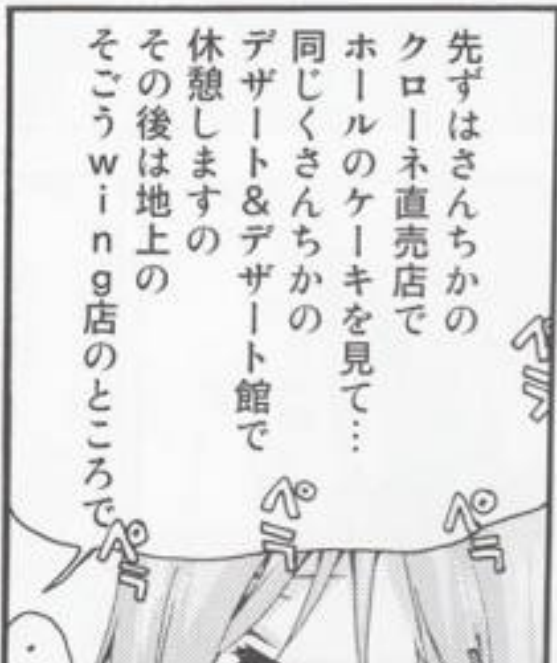 先ずはさんちかの
クローネ直売店で
ホールのケーキを見て…
同じくさんちかの
デザート&デザート館で
休憩しますの
その後は地上の
そごうwing店のところで
ペラ
ペラ
ペラ
ペラ